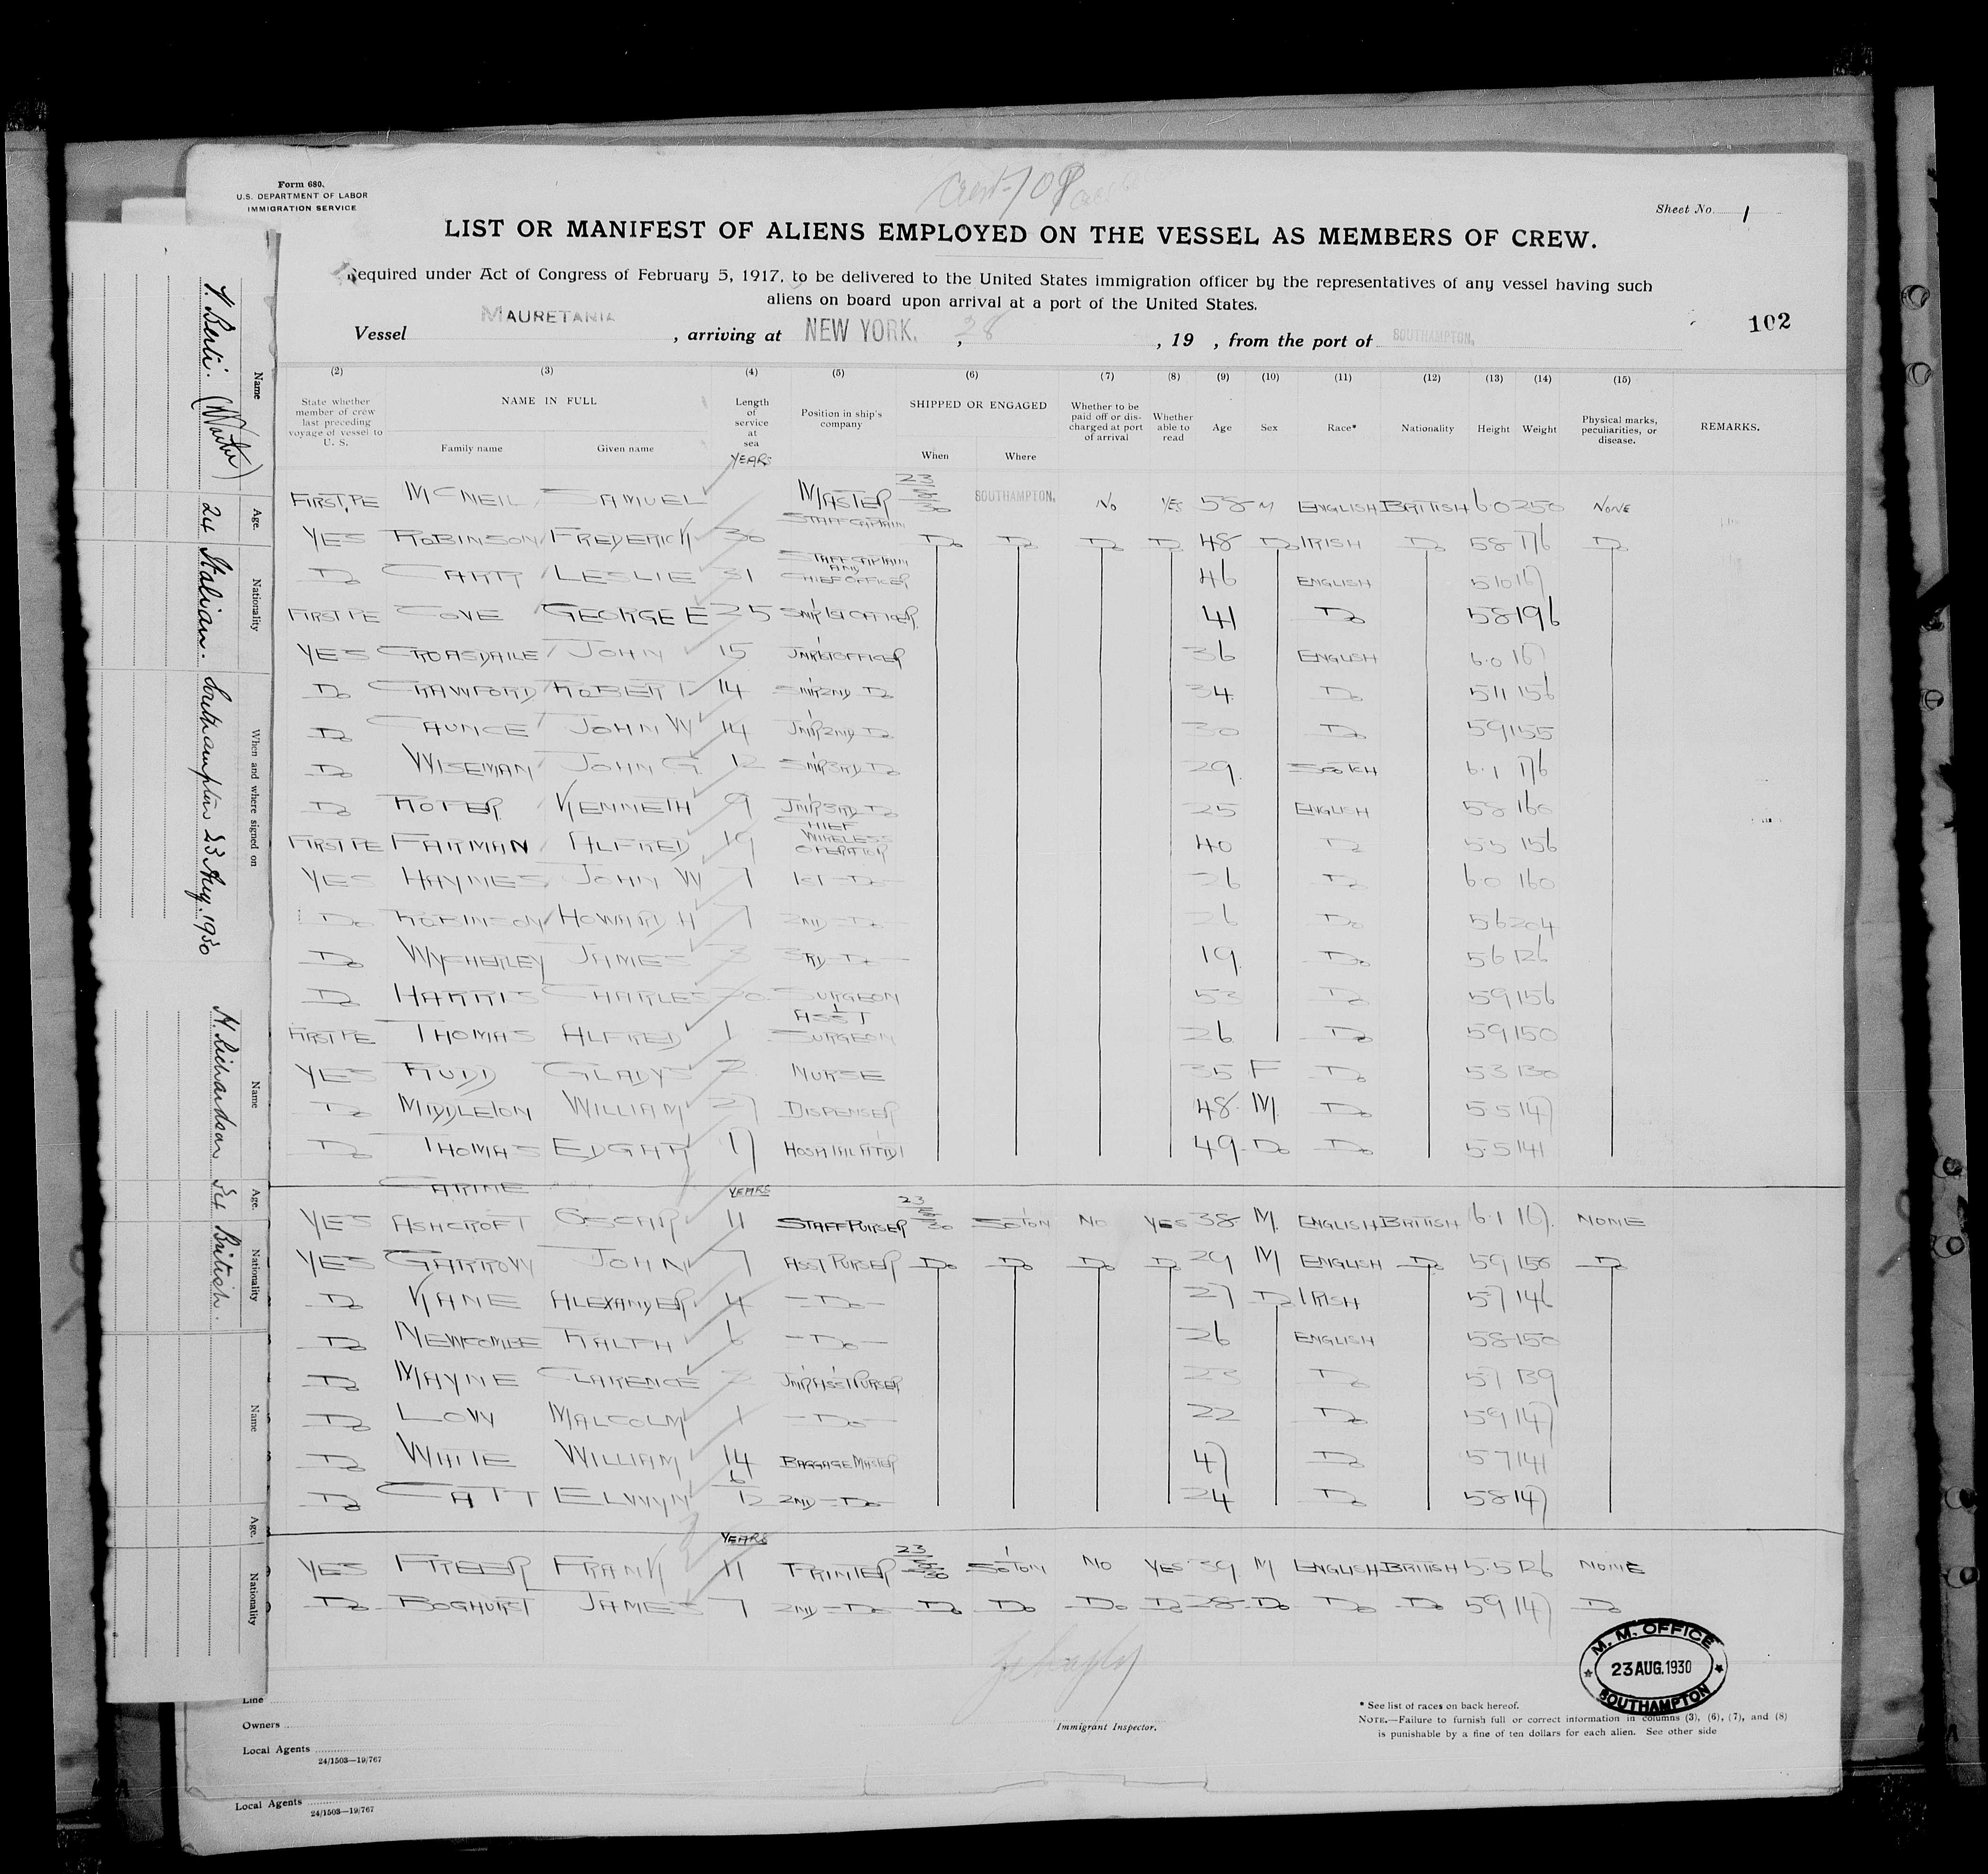 Form 680,
U.S. DEPARTMENT OF LABOR
IMMIGRATION SERVICE
Sheet No. 1
LIST OR MANIFEST OF ALIENS EMPLOYED ON THE VESSEL AS MEMBERS OF CREW.
Required under Act of Congress of February 5, 1917, to be delivered to the United States immigration officer by the representatives of any vessel having such
aliens on board upon arrival at a port of the United States.
Vessel MAURETANIA, arriving at NEW YORK. , 28 , 19 , from the port of SOUTHAMPTON.
102
(2) (3) (4) (5) (6) (7) (8) (9) (10) (11) (12) (13) (14) (15)
State whether member of crew last preceding voyage of vessel to U. S. NAME IN FULL Family name Given name Length of service at sea Position in ship's company SHIPPED OR ENGAGED When Where Whether to be paid off or discharged at port of arrival Whether able to read Age Sex Race* Nationality Height Weight Physical marks, peculiarities, or disease. REMARKS.
YEARS
FIRST PE MCNEIL SAMUEL MASTER 23/8/30 SOUTHAMPTON. NO YES 58 M ENGLISH BRITISH 6.0 250 NONE
YES ROBINSON FREDERICK 30 STAFF CAPTAIN Do Do Do Do 48 Do IRISH Do 58 176 Do
Do CARR LESLIE 31 STAFF CAPTAIN AND CHIEF OFFICER 46 ENGLISH 510 167
FIRST PE COVE GEORGE E 25 SNR 1ST OFFICER 41 Do 58 196
YES CROASDAILE JOHN 15 JNR 1ST OFFICER 36 ENGLISH 6.0 167
Do CRAWFORD ROBERT 14 SNR 2ND Do 34 Do 511 156
Do CAUNCE JOHN W 14 JNR 2ND Do 30 Do 59 155
Do WISEMAN JOHN G 12 SNR 3RD Do 29 SCOTCH 6.1 176
Do ROPER KENNETH 9 JNR 3RD Do 25 ENGLISH 58 160
FIRST PE FARMAN ALFRED 19 CHIEF WIRELESS OPERATOR 40 Do 55 156
YES HAYNES JOHN W 7 1ST Do 26 Do 6.0 160
Do ROBINSON HOWARD H 7 2ND Do 26 Do 56 204
Do WYCHERLEY JAMES 3 3RD Do 19 Do 56 126
Do HARRIS CHARLES 20 SURGEON 53 Do 59 156
FIRST PE THOMAS ALFRED 1 ASST SURGEON 26 Do 59 150
YES RUDD GLADYS 2 NURSE 35 F Do 53 130
Do MIDDLETON WILLIAM 27 DISPENSER 48 M Do 5.5 147
Do THOMAS EDGAR 17 HOSPITAL ATTDT 49 Do Do 5.5 141
CARINE YEARS
YES ASHCROFT OSCAR 11 STAFF PURSER 23/8/30 SO'TON NO YES 38 M. ENGLISH BRITISH 6.1 167. NONE
YES GARROW JOHN 7 ASST PURSER Do Do Do Do 29 M ENGLISH Do 59 150 Do
Do KANE ALEXANDER 4 Do 27 Do IRISH 57 146
Do NEWCOMBE RALPH 6 Do 26 ENGLISH 58 150
Do MAYNE CLARENCE 2 JNR ASST PURSER 23 Do 57 139
Do LOW MALCOLM 1 Do 22 Do 59 147
Do WHITE WILLIAM 14 BAGGAGE MASTER 47 Do 57 141
Do CATT ELWYN 6/12 2ND Do 24 Do 58 147
YEARS
YES FREER FRANK 11 PRINTER 23/8/30 SO'TON NO YES 39 M ENGLISH BRITISH 5.5 126 NONE
Do BOGHURST JAMES 7 2ND Do Do Do Do Do 28 Do Do Do 59 147 Do
M. M. OFFICE
23 AUG. 1930
SOUTHAMPTON
Line
Owners
Local Agents
24/1503—19/767
Immigrant Inspector.
* See list of races on back hereof.
NOTE.—Failure to furnish full or correct information in columns (3), (6), (7), and (8)
is punishable by a fine of ten dollars for each alien. See other side
Local Agents
24/1503—19/767
Name Age. Nationality When and where signed on
Berli. (Waiter) 24 Italian. Southampton 23 Aug. 1930
Name Age. Nationality
H. Richardson 34 British.
Name Age. Nationality